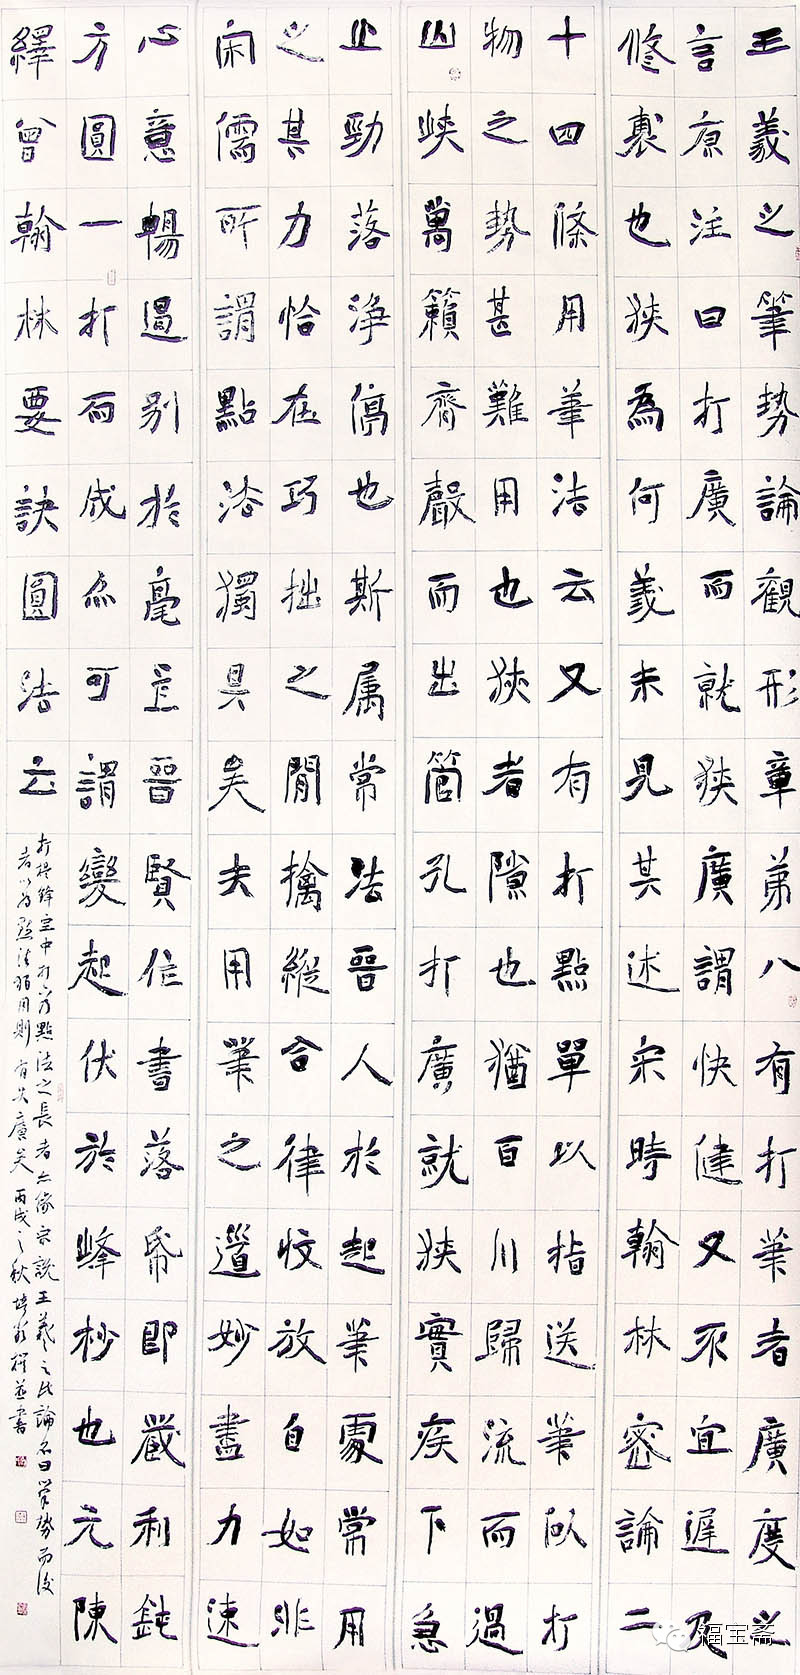 王羲之筆勢論觀形章弟八有打筆者廣度之
言原注曰打廣而就狹廣謂快健又不宜遲及
修裏也狹為何義未見其述宋時翰林密論二
十四條用筆法云又有打點單以指送筆似打
物之勢甚難用也狹者隙也猶百川歸流而過
山峽萬籟齊聲而出箇孔打廣就狹實疾下急
止勁落淨停也斯属常法晉人於起筆處常用
之其力恰在巧拙之間擒縱合律收放自如非
闲儒所謂點法獨具矣夫用筆之遒妙盡力速
心意暢過别於毫芒晉賢作書落帋即嚴利鈍
方圓一打而成亦可謂變起伏於峰杪也元陳
繹曾翰林要訣圓法云
打捉鋒空中打點法之長者亦宗說王羲之此論名曰筆勢而後
者以為點法用則有失廣矣丙戌之秋培撰並書
福宝斋